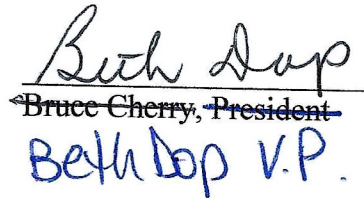 Beth Dop
Bruce Cherry, President
Beth Dop V.P.